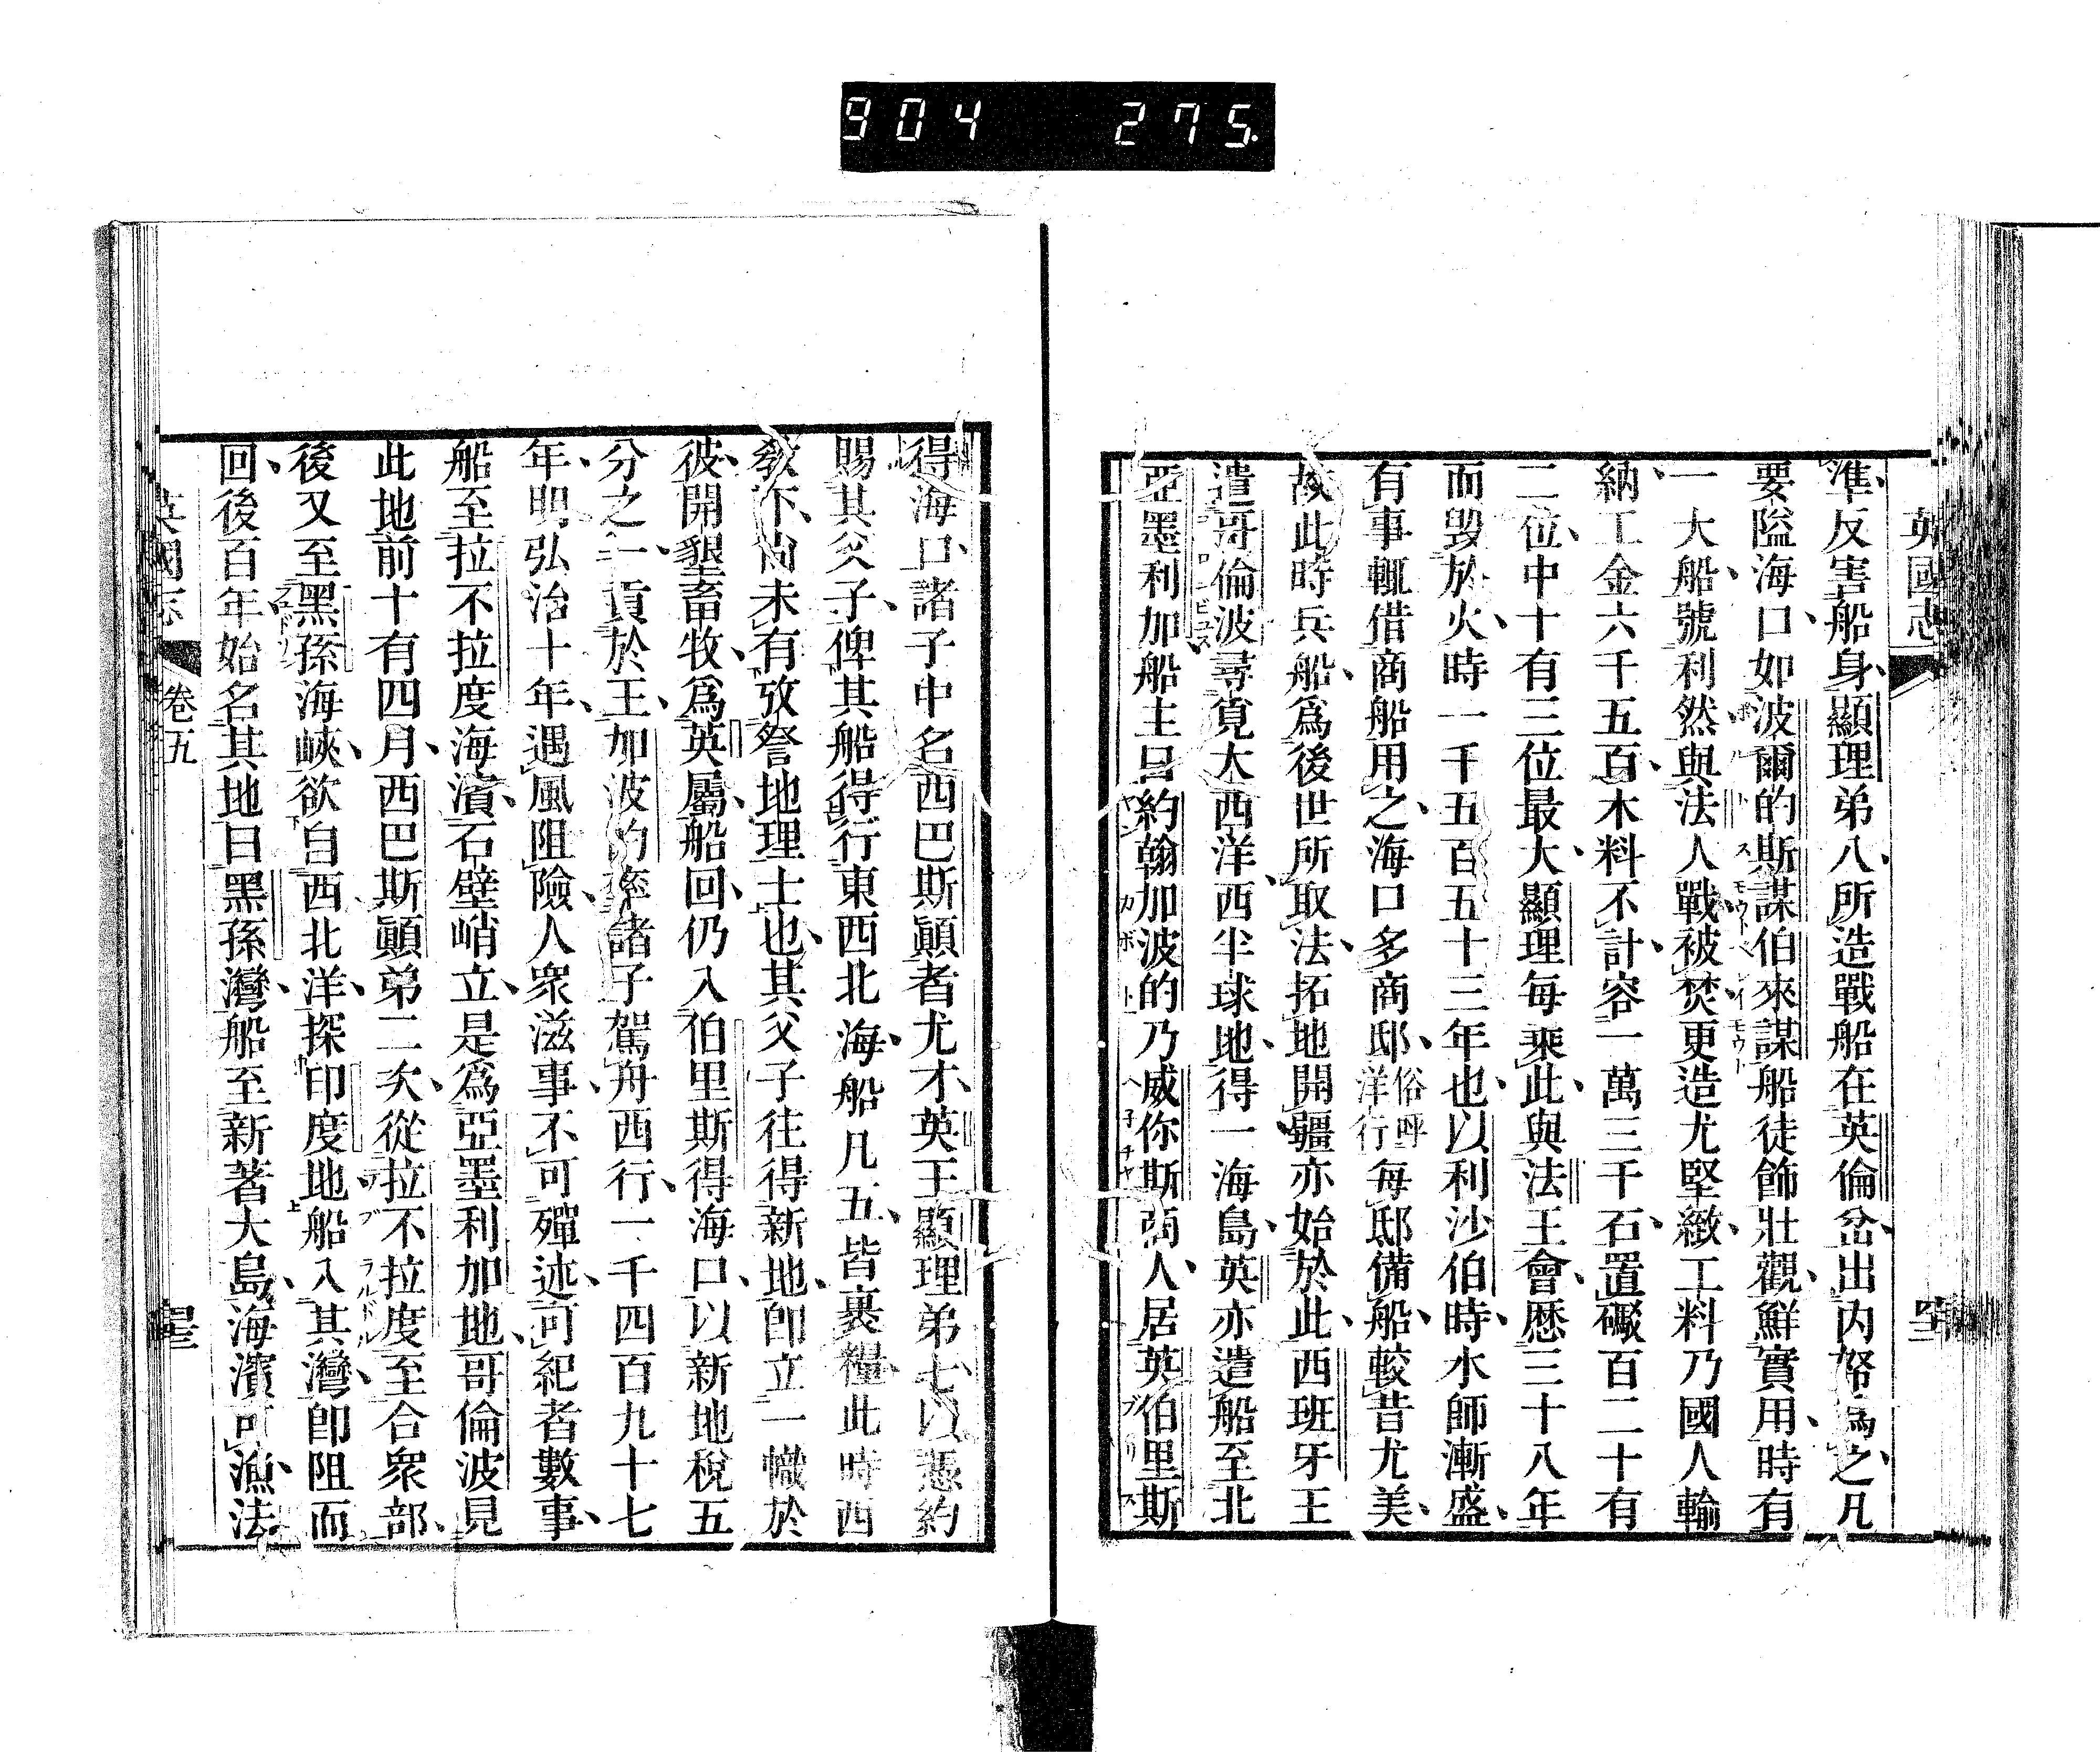 904 275.
英國志
準反害船身顯理弟八所造戰船在英倫岔出内帑爲之凡
要隘海口如波爾的斯謀伯來謀船徒飾壯觀鮮實用時有
一大船號利然與法人戰被焚更造尤堅緻工料乃國人輸
納工金六千五百木料不計容一萬三千石置礮百二十有
二位中十有三位最大顯理每乘此與法王會歷三十八年
而毀於火時一千五百五十三年也以利沙伯時水師漸盛
有事輒借商船用之海口多商邸俗呼洋行每邸備船較昔尤美
故此時兵船爲後世所取法拓地開疆亦始於此西班牙王
遣哥倫波尋覓大西洋西半球地得一海島英亦遣船至北
亞墨利加船主曰約翰加波的乃威你斯商人居英伯里斯
得海口諸子中名西巴斯顚者尤才英王顯理弟七以憑約
賜其父子俾其船得行東西北海船凡五皆裹糧此時西
教下尚未有攷詧地理士也其父子往得新地卽立一幟於
彼開墾畜牧爲英屬船回仍入伯里斯得海口以新地稅五
分之一貢於王加波的率諸子駕舟西行一千四百九十七
年明弘治十年遇風阻險人衆滋事不可殫述可紀者數事
船至拉不拉度海濱石壁峭立是爲亞墨利加地哥倫波見
此地前十有四月西巴斯顚弟二次從拉不拉度至合衆部
後又至黑孫海峽欲自西北洋探印度地船入其灣卽阻而
回後百年始名其地曰黑孫灣船至新著大島海濱可漁法
英國志 卷五